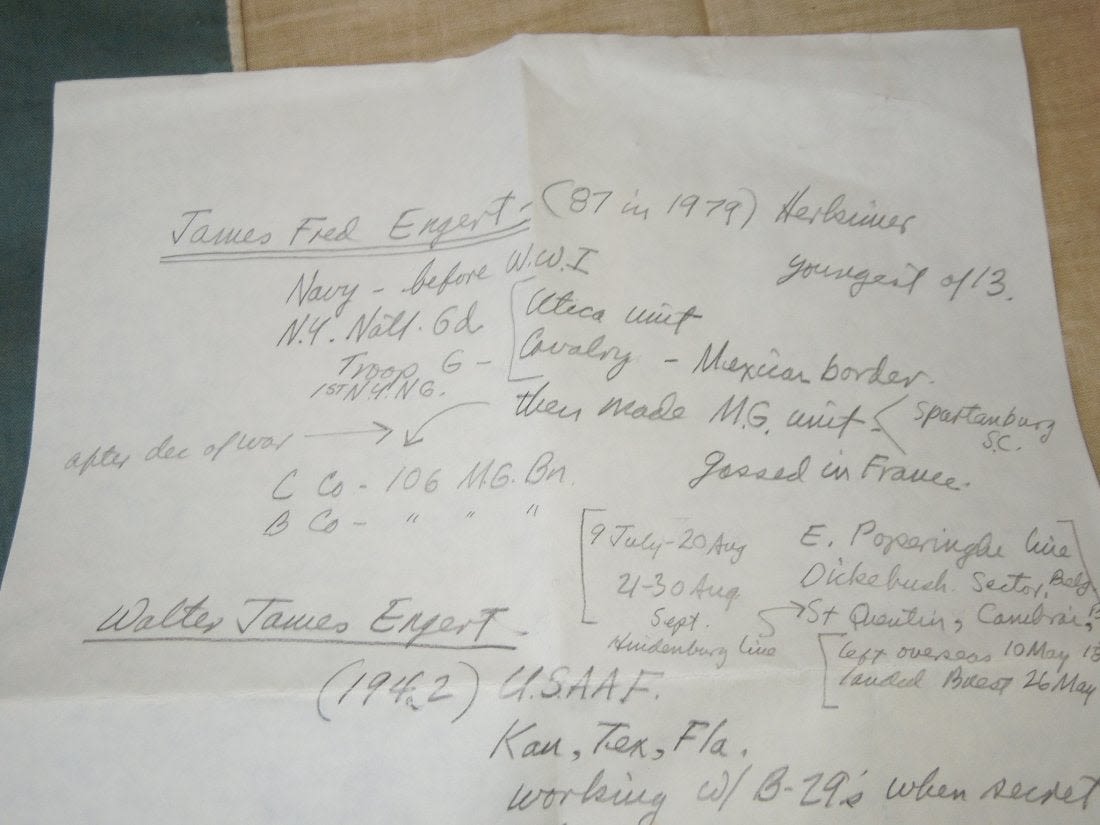 James Fred Engert - (87 in 1979) Herkimer
youngest of 13.
Navy - before W.W.I
N.Y. Natl. Gd. Utica unit
Troop G - Cavalry - Mexican border.
1ST N.Y. N.G.
then made M.G. unit Spartanburg
S.C.
after dec of war
gassed in France.
C Co - 106 M.G. Bn.
B Co - " " "
9 July-20 Aug E. Poperinghe line
21-30 Aug Dickebush Sector, Belg
Sept. St Quentin, Cambrai,
Hindenburg line
left overseas 10 May 18
landed Brest 26 May
Walter James Engert
(1942) U.S.A.A.F.
Kan, Tex, Fla.
working w/ B-29's when secret